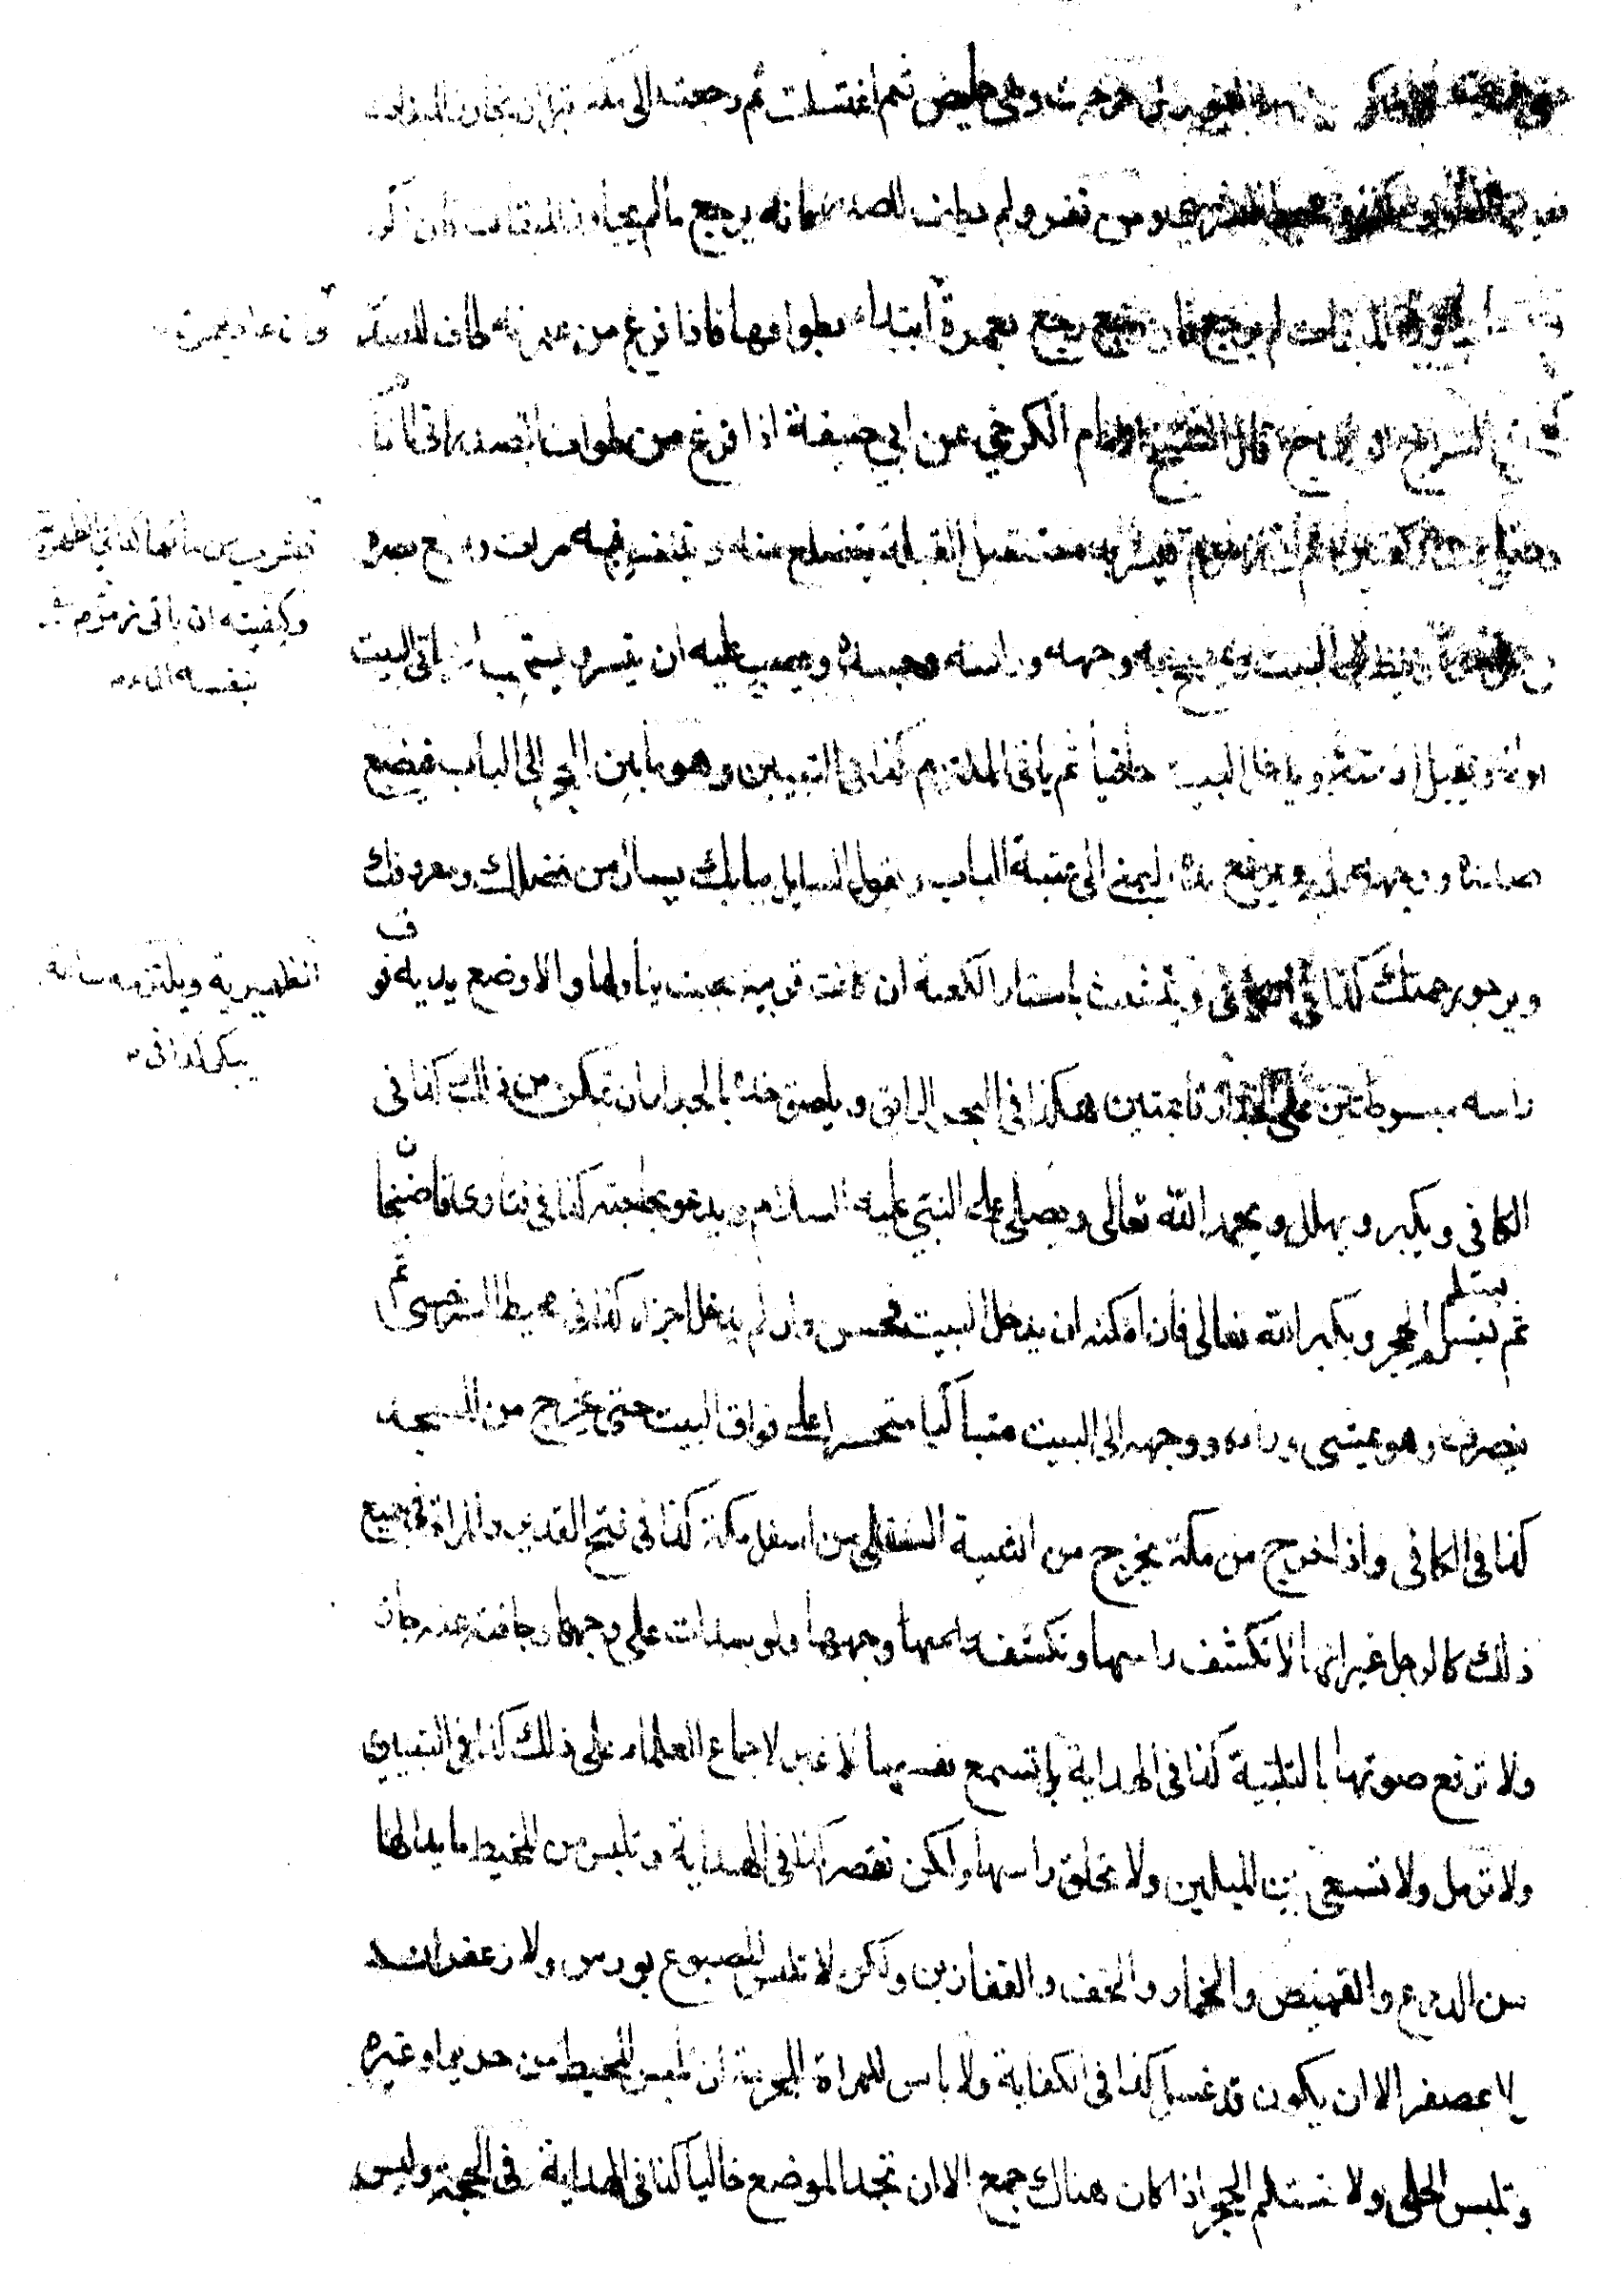 وهي حايض ثم اغتسلت ثم رجعت الى مكة قبل ان تجاوز الميقات
ومن نفر ولم يطف للصدر فانه يرجع ما لم يجاوز الميقات فان ذكر
الميقات لم يرجع فان رجع رجع بعمرة ابتداء بطوافها فاذا فرغ من عمرته طاف للصدر
وان عاد بعمرة
السراج الوهاج قال الشيخ الامام الكرخي عن ابي حنيفة اذا فرغ من طواف الصدر اتى
مستقبل القبلة يتضلع منه ويتنفس فيه مرات ويرفع بصره
فيشرب من مائها كذا في الظهيرية
وكيفيته ان ياتي زمزم
بنفسه الماء
البيت ويمسح به وجهه وراسه وجسده ويصب عليه ان تيسر ويستحب ان ياتي البيت
اولا ويقبل العتبة ويدخل البيت حافيا ثم ياتي الملتزم كذا في التبيين وهو ما بين الحجر الى الباب فيضع
صدره ووجهه عليه ويرفع يده اليمنى الى عتبة الباب ويقول السايل ببابك يسال من فضلك ومعروفك
ويرجو رحمتك كذا في ويتشبث باستار الكعبة ان كانت قريبة بحيث ينالها والا وضع يديه فوق
الظهيرية ويلتزمه ساعة
يبكي كذا في
راسه مبسوطتين على الجدار قايمتين هكذا في البحر الرايق ويلصق خده بالجدار ان تمكن من ذلك كذا في
الكافي ويكبر ويهلل ويحمد الله تعالى ويصلي على النبي عليه السلام ويدعو بحاجته كذا في فتاوى قاضيخان
ثم يستلم الحجر ويكبر الله تعالى فان امكنه ان يدخل البيت فحسن وان لم يدخل اجزاه كذا في محيط السرخسي ثم
ينصرف وهو يمشي وراءه ووجهه الى البيت متباكيا متحسرا على فراق البيت حتى يخرج من المسجد
كذا في الكافي واذا خرج من مكة يخرج من الثنية السفلى من اسفل مكة كذا في فتح القدير والمراة في جميع
ذلك كالرجل غير انها لا تكشف راسها وتكشف وجهها ولو سدلت على وجهها وجافته عنه جاز
ولا ترفع صوتها بالتلبية كذا في الهداية بل تسمع نفسها لا غير لاجماع العلماء على ذلك كذا في التبيين
ولا ترمل ولا تسعى بين الميلين ولا تحلق راسها ولكن تقصر كذا في الهداية وتلبس من المخيط ما بدا لها
من الدرع والقميص والخمار والخف والقفازين ولكن لا تلبس المصبوغ بورس ولا زعفران
لا عصفر الا ان يكون قد غسل كذا في الكفاية ولا باس للمراة المحرمة ان تلبس المخيط من حرير او غيره
وتلبس الحلي ولا تستلم الحجر اذا كان هناك جمع الا ان تجد الموضع خاليا كذا في الهداية في الحجة وليس